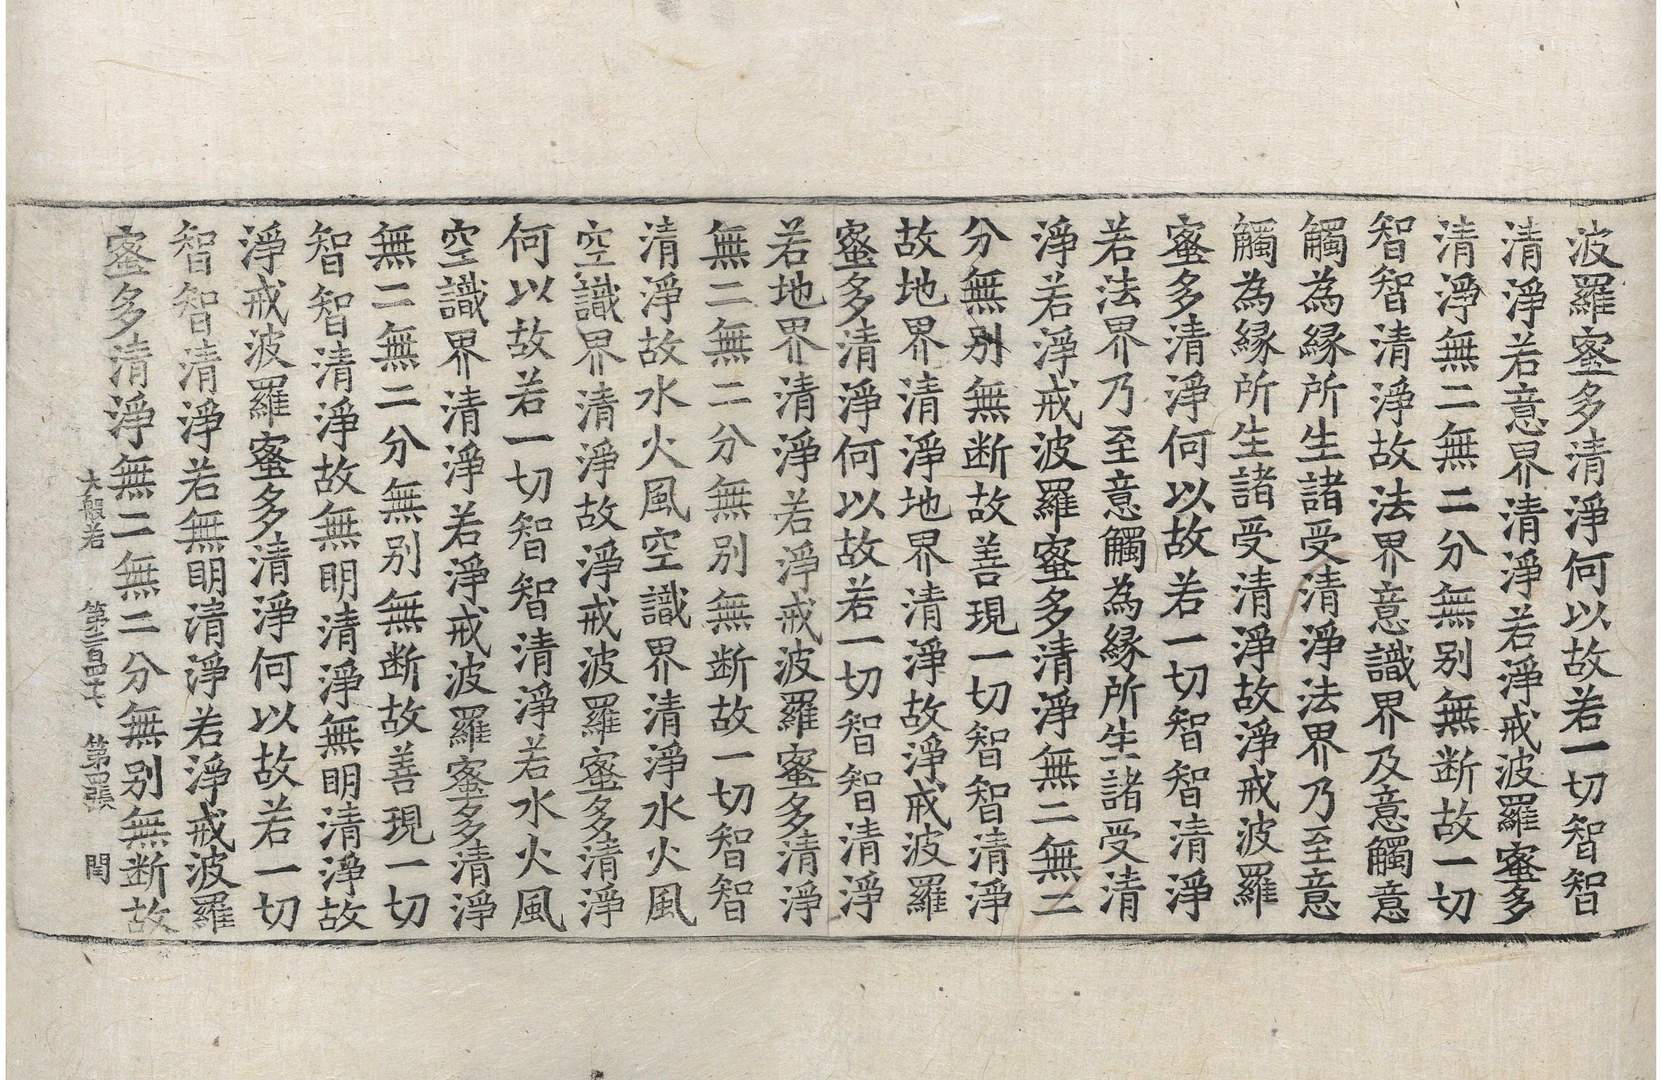 波羅蜜多清淨何以故若一切智智
清淨若意界清淨若淨戒波羅蜜多
清淨無二無二分無别無断故一切
智智清淨故法界意識界及意觸意
觸為縁所生諸受清淨法界乃至意
觸為縁所生諸受清淨故淨戒波羅
蜜多清淨何以故若一切智智清淨
若法界乃至意觸為縁所生諸受清
淨若淨戒波羅蜜多清淨無二無二
分無别無断故善現一切智智清淨
故地界清淨地界清淨故淨戒波羅
蜜多清淨何以故若一切智智清淨
若地界清淨若淨戒波羅蜜多清淨
無二無二分無别無断故一切智智
清淨故水火風空識界清淨水火風
空識界清淨故淨戒波羅蜜多清淨
何以故若一切智智清淨若水火風
空識界清淨若淨戒波羅蜜多清淨
無二無二分無别無断故善現一切
智智清淨故無明清淨無明清淨故
淨戒波羅蜜多清淨何以故若一切
智智清淨若無明清淨若淨戒波羅
蜜多清淨無二無二分無别無断故
大般若 第二百四十 第四張 閏